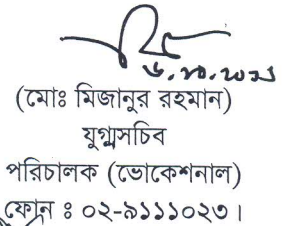 (মোঃ মিজানুর রহমান)
যুগ্মসচিব
পরিচালক (ভোকেশনাল)
ফোন ঃ ০২-৯১১১০২৩।